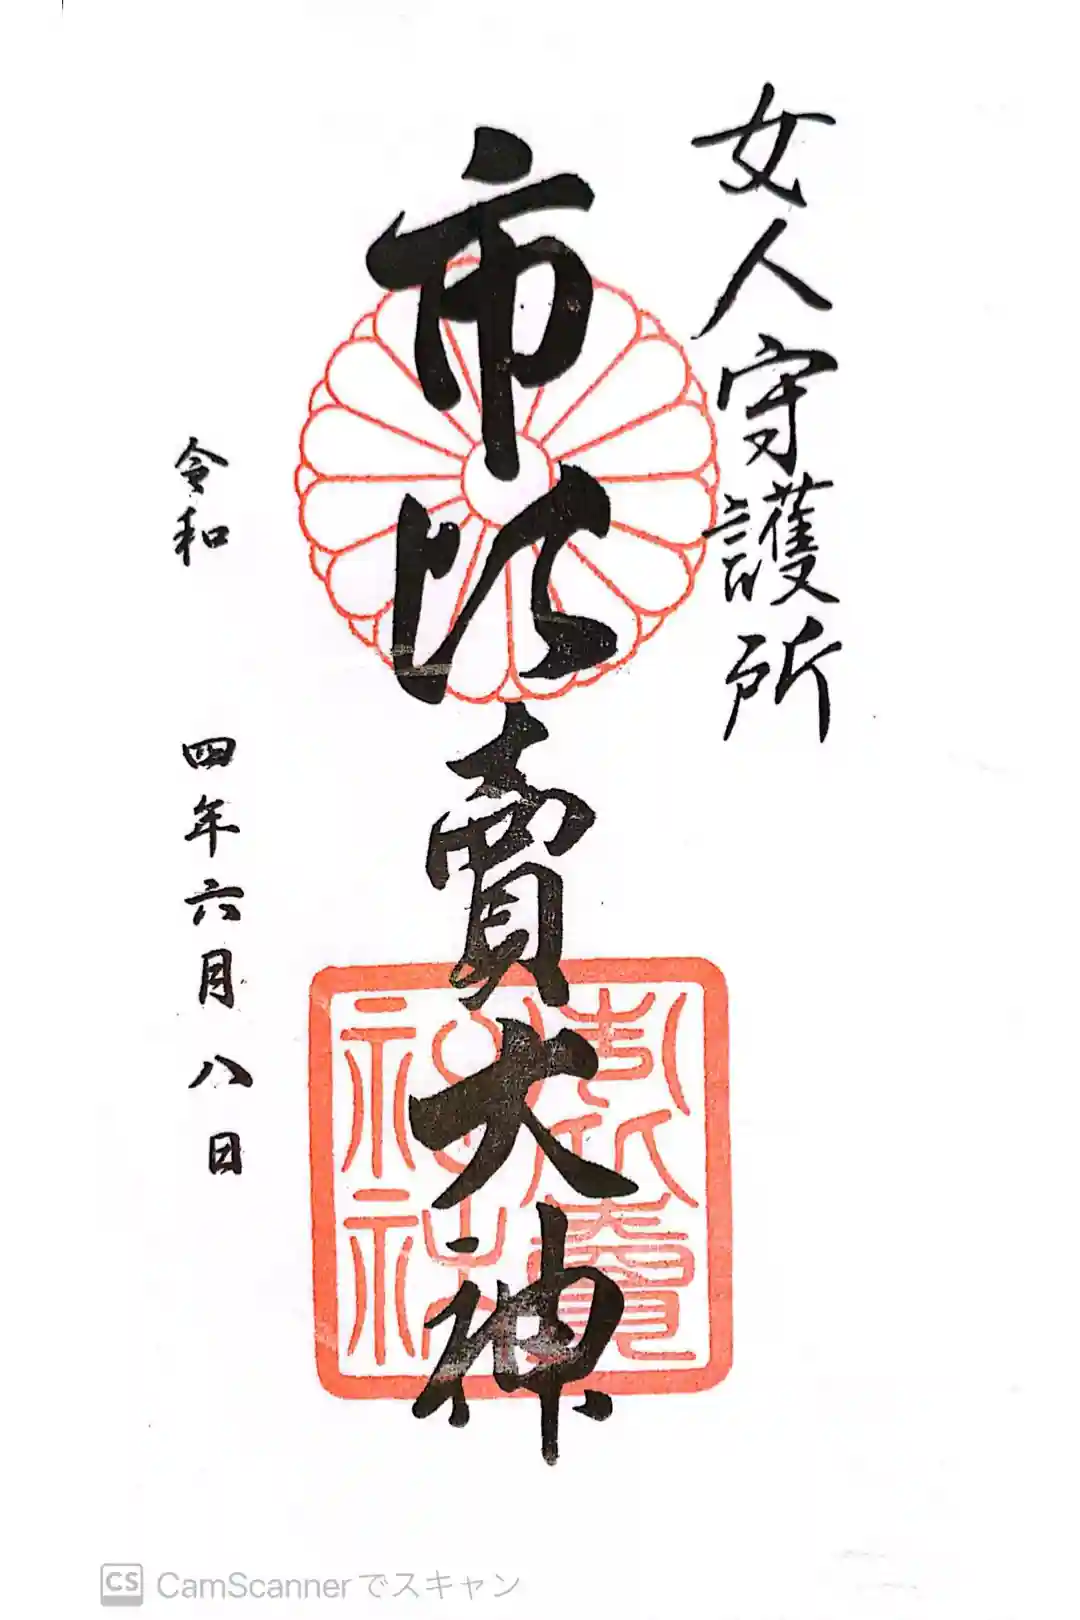 女人守護所
市比賣大神
令和 四年六月八日
CS CamScannerでスキャン